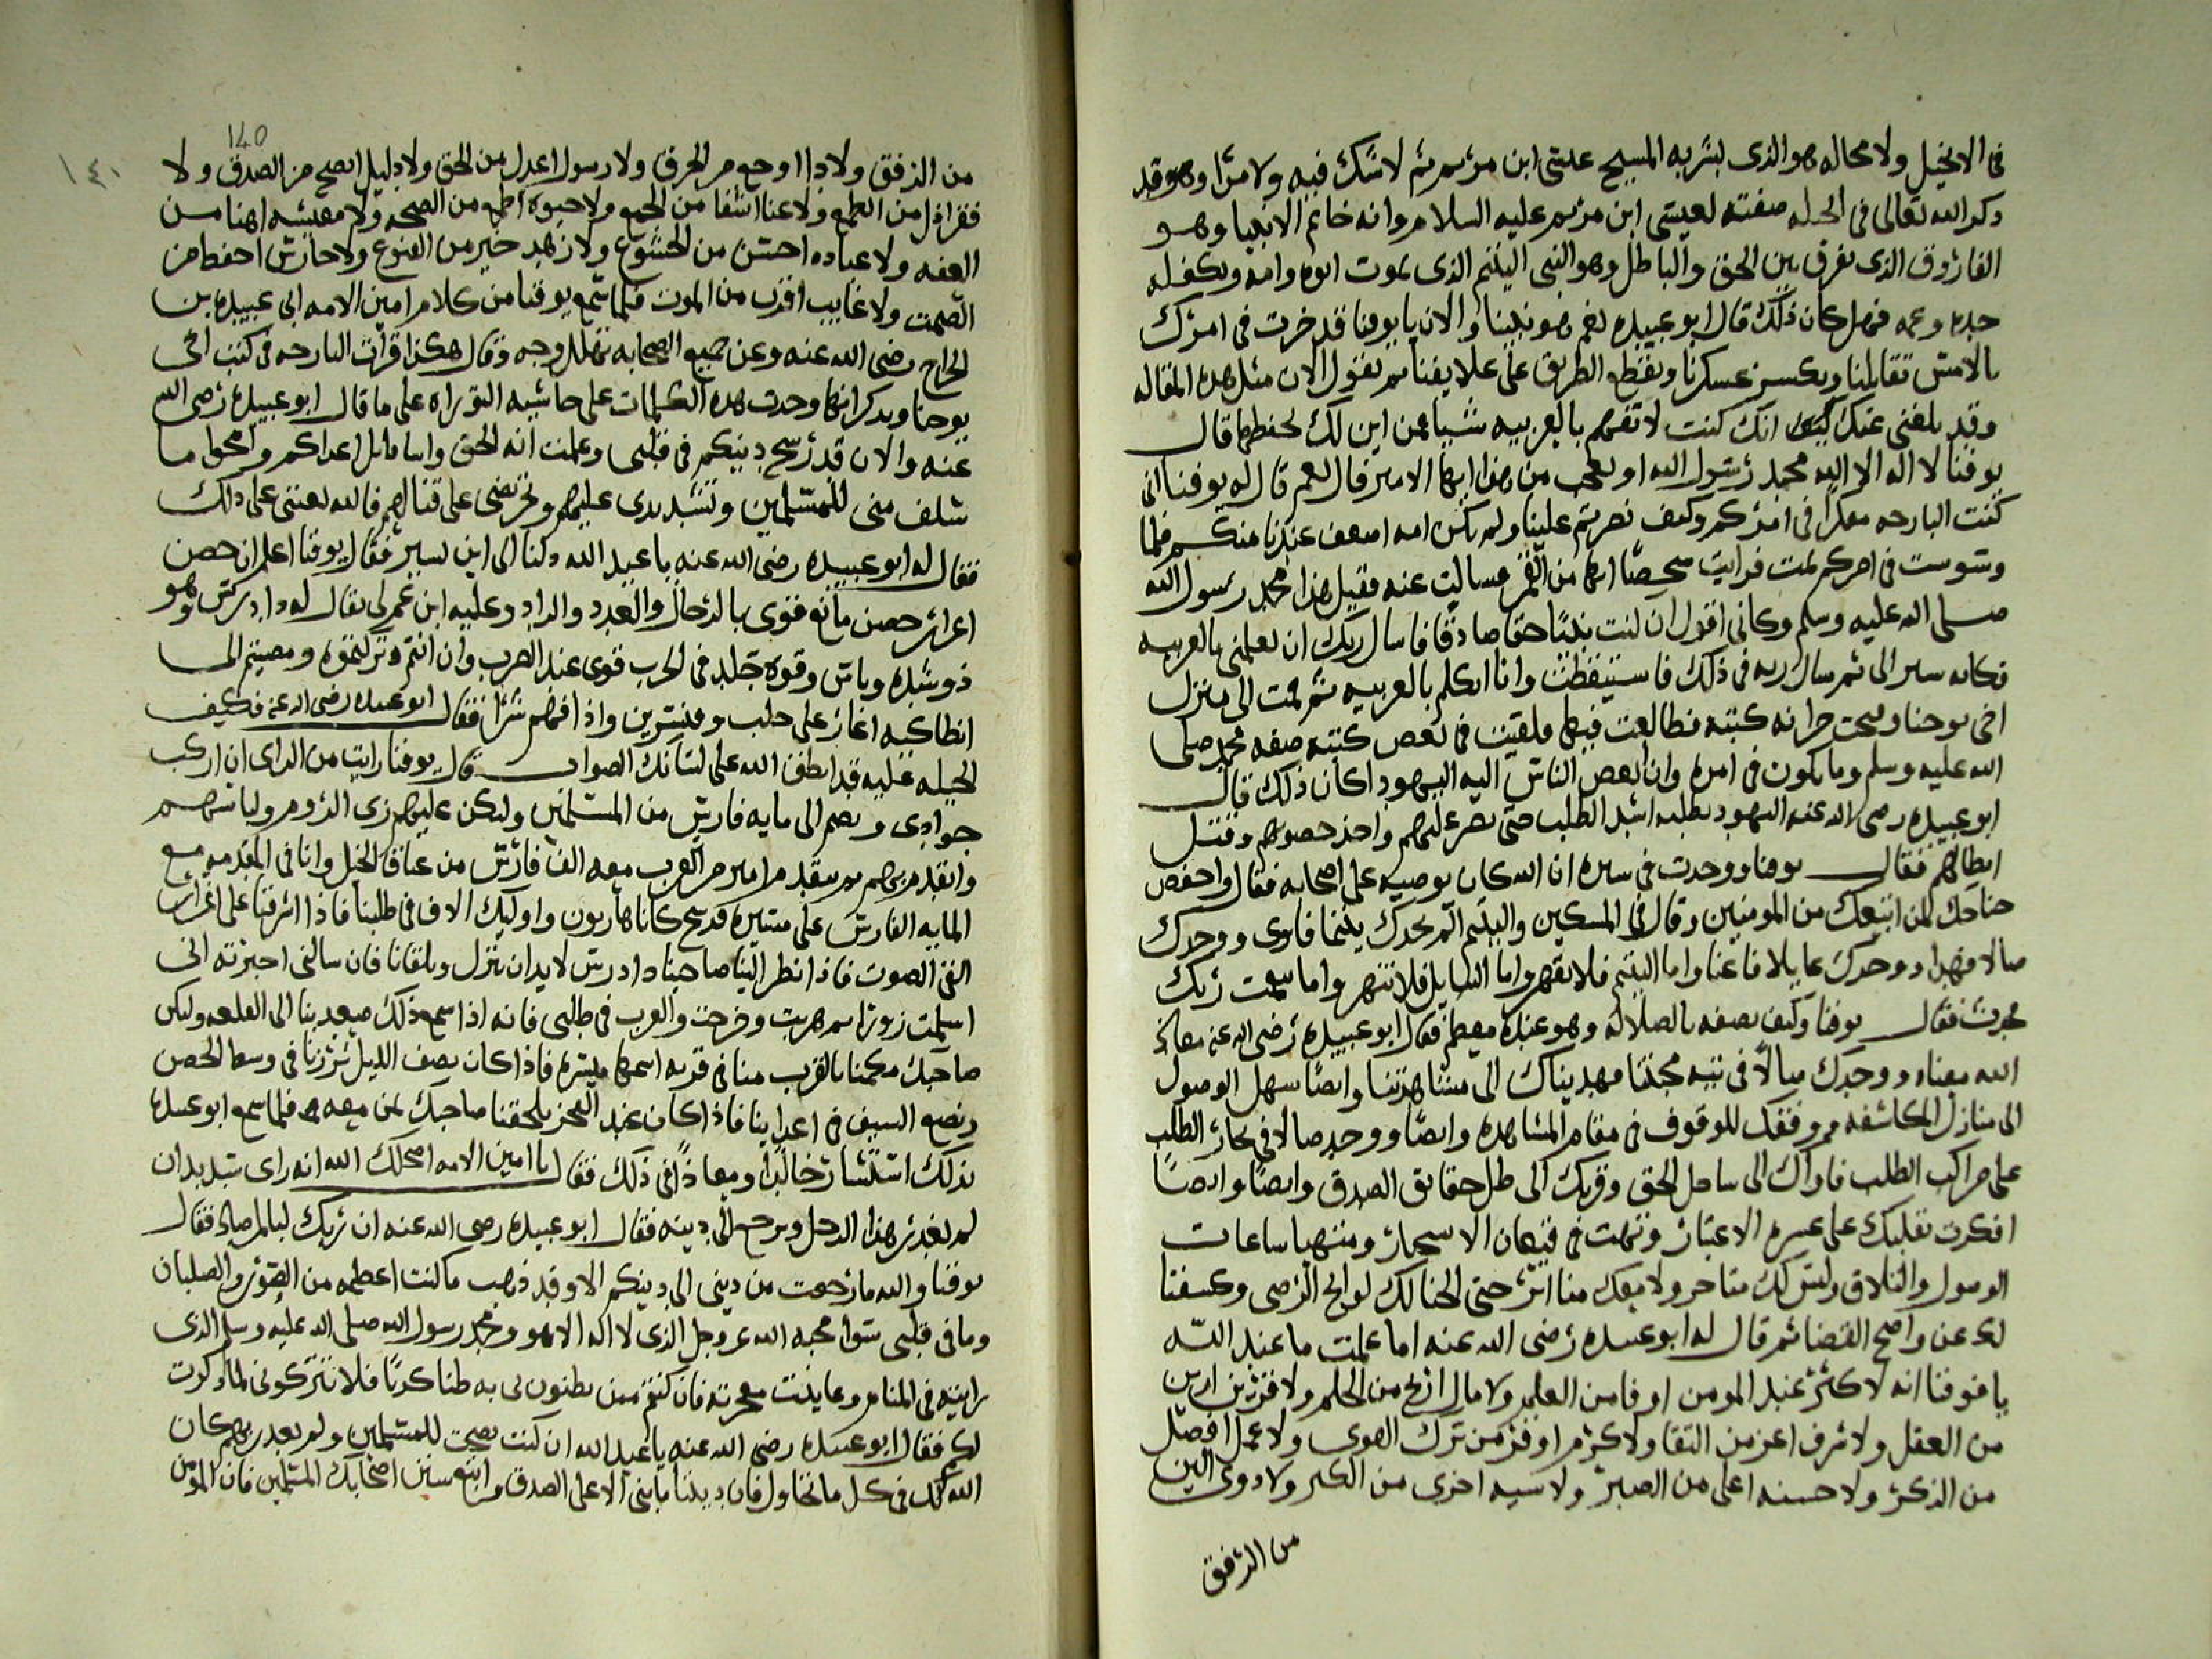 في الانجيل ولا محاله هو الذى بشر به المسيح عيسى ابن مريم ثم لا شك فيه ولا مرا وهو قد
ذكر الله تعالى في صفته لعيسى ابن مريم عليه السلام وانه خاتم الانبيا وهو
الفاروق الذى يفرق بين الحق والباطل وهو النبي اليتيم الذى يموت ابوه وامه ويكفله
جده وعمه فهل كان ذلك قال ابو عبيده نعم هو نبينا والان يا يوقنا قد حرت في امرك
بالامس تقاتلنا وتكسر عسكرنا وتقطع الطريق على علايفنا ثم تقول الان مثل هذه المقاله
وقد بلغني عنك انك كنت لا تفهم بالعربيه شيا فمن اين لك حفظها قال
يوقنا لا اله الا الله محمد رسول الله او تعجب من هذا ايها الامير قال نعم قال له يوقنا اني
كنت البارحه مفكرا في امركم وكيف نصرتم علينا ولم يكن امه اضعف عندنا منكم فلما
وسوست في امركم نمت فرايت شخصًا ابها من القمر فسالت عنه فقيل هذا محمد رسول الله
صلى الله عليه وسلم وكاني اقول ان كنت نبيًا حقا صادقًا فاسال ربك ان يعلمني بالعربيه
فكانه يشير الى ثم سال ربه في ذلك فاستيقظت وانا اتكلم بالعربيه ثم قمت الى منزل
اخي يوحنا وفتحت خزانه كتبه فطالعت فيها فلقيت في بعض كتبه صفه محمد صلى
الله عليه وسلم وما يكون في امره وان ابغض الناس اليه اليهود اكان ذلك قال
ابو عبيده رضى الله عنه اليهود تطلبه اشد الطلب حتى نصر عليهم واخذ حصونهم وقتل
ابطالهم فقال يوقنا ووجدت في سيره ان الله كان يوصيه على اصحابه فقال واخفض
جناحك لمن اتبعك من المومنين وقال في المسكين واليتيم الم يجدك يتيما فاوى ووجدك
ضالا فهدا ووجدك عايلا فاغنا واما اليتيم فلا تقهر واما السايل فلا تنهر واما بنعمت ربك
فحدث فقال يوقنا وكيف يصفه بالضلاله وهو عنده معظم فقال ابو عبيده رضى الله عنه معاذ
الله معناه ووجدك ضالًا في تيه محبتنا فهديناك الى مشاهدتنا وايضًا سهل الوصول
الى منازل المكاشفه ووفقك للوقوف في مقام المشاهده وايضًا ووجد ضالا في بحار الطلب
على مراكب الطلب فاواك الى ساحل الحق وقربك الى ظل حقايق الصدق وايضًا وايضًا
افكرت بقلبك على الاعتبار وتهت في قيعان الاسحار ساعات
الوصول والتلاق وليس لك متاخر ولا معك منا اثر حتى الحنا لك لوايح الرضى وكشفنا
لك عن واضح القضا ثم قال له ابو عبيده رضى الله عنه اما علمت ما عند الله
يا يوقنا انه لا كنز عند المومن اوفا من العلم ولا مال اربح من الحلم ولا قرين ازين
من العقل ولا شرف اعز من التقا ولا كرم اوفر من ترك الهوى ولا عمل افضل
من الذكر ولا حسنه اعلى من الصبر ولا سيه اخزى من الكبر ولا دوى الين
من الرفق
140
١٤٠
من الرفق ولا دا اوجع من الخرق ولا رسول اعدل من الحق ولا دليل انصح من الصدق ولا
فقر اذل من الطمع ولا عنا اشقا من الجمع ولا حيوه اطيب من الصحه ولا معيشه اهنا من
العفه ولا عباده احسن من الخشوع ولا زهد خير من القنوع ولا حارس احفظ من
الصمت ولا غايب اقرب من الموت فلما سمع يوقنا من كلام امين الامه ابي عبيده بن
الجراح رضى الله عنه وعن جميع الصحابه تهلل وجه وقال هكذا قرات البارحه في كتب اخي
يوحنا ويذكر انها وجدت هذه الكلمات على حاشيه التوراه على ما قال ابو عبيده رضى الله
عنه والان قد رسخ دينكم في قلبي وعلمت انه الحق وانا اقاتل اعداكم وامحوا ما
سلف منى للمسلمين وتشديدى عليهم وتحريضى على قتالهم فالله يعيننى على ذلك
فقال له ابو عبيده رضى الله عنه يا عبد الله دلنا الى اين نسير فقال يوقنا اعلم ان حصن
اعزاز حصن مانع قوى بالرجال والعدد والزاد وعليه ابن عم لى يقال له دادرس وهو
ذو شده وباس وقوه جلد في الحرب قوى عند الضرب وان انتم تركتموه ومضيتم الى
انطاكيه اغار على حلب وقنسرين واذاقهم شرا فقال ابو عبيده رضى الله عنه فكيف
الحيله عليه قد انطق الله على لسانك الصواب قال يوقنا رايت من الراى ان اركب
جوادى ونضم الى مايه فارس من المسلمين وليكن عليهم زى الروم ولباسهم
واتقدم بهم ثم يتقدم امير من العرب معه الف فارس من عتاق الخيل وانا في المقدمه مع
المايه الفارس على مسيره فرسخ كانا هاربون واوليك الالف في طلبنا فاذا اشرفنا على اعزاز
القى الصوت فاذا نظر الينا صاحبنا دادرس لا بد ان ينزل ويلقانا فان سالني اخبرته اني
اسلمت زورًا ثم هربت وخرجت والعرب في طلبي فانه اذا سمع ذلك صعد بنا الى القلعه وليكن
صاحبك مكمنا بالقرب منا في قريه اسمها فاذا كان نصف الليل ثرنا في وسط الحصن
ونضع السيف في اعداينا فاذا كان عند الفجر يلحقنا صاحبك بمن معه فلما سمع ابو عبيده
بذلك استشار خالدًا ومعاذًا في ذلك فقال يا امين الامه اصلحك الله انه راى شديد ان
لم يغدر هذا الرجل ويرجع الى دينه فقال ابو عبيده رضى الله عنه ان ربك لبالمرصاد فقال
يوقنا والله ما رجعت من دينى الى دينكم الا وقد ذهب ما كنت اعظمه من الصور والصلبان
وما في قلبي سوا محبه الله عز وجل الذى لا اله الا هو ومحمد رسول الله صلى الله عليه وسلم الذى
رايته في المنام وعاينت معجزته فان كنتم ممن يظنون بى به ظنا كذبًا فلا تتركوني لما ذكرت
لكم فقال ابو عبيده رضى الله عنه يا عبد الله ان كنت نصحت للمسلمين ولم تغدر بهم كان
الله لك في كل ما تحاول فان ديننا ما بنى الا على الصدق واتبع سنن اصحابك المسلمين فان المومن